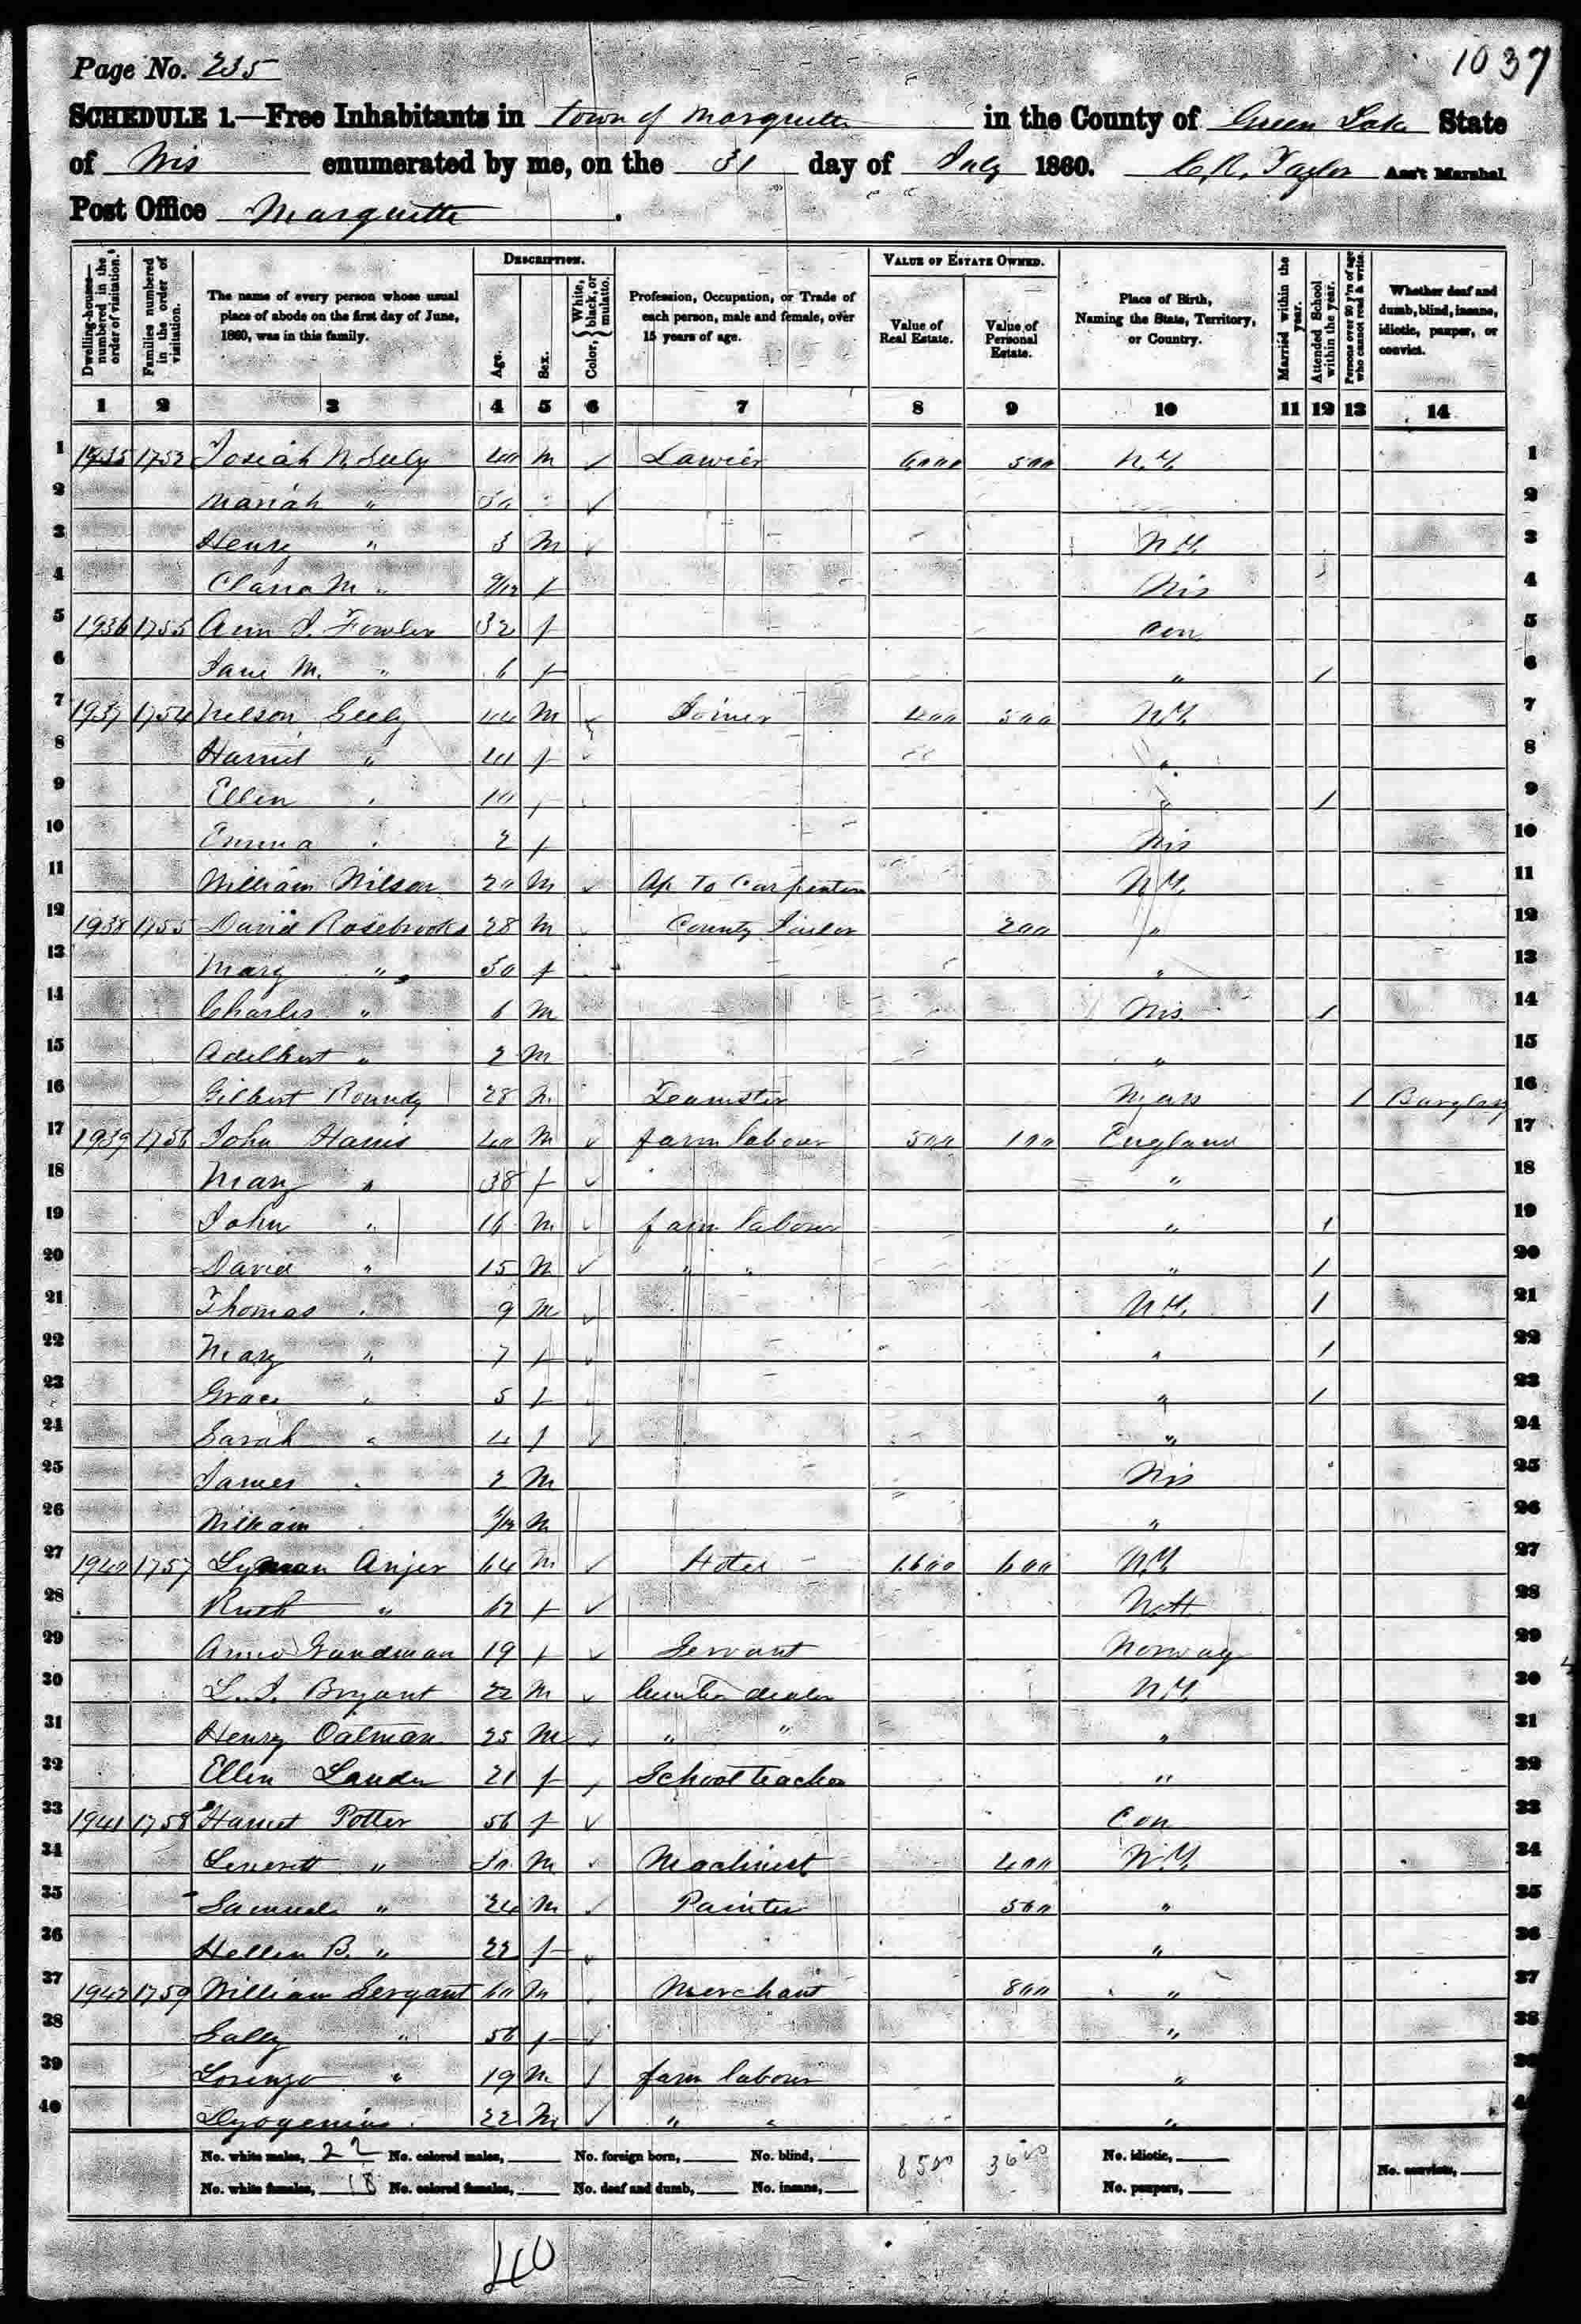 Page No. 235
1037
SCHEDULE 1.—Free Inhabitants in Town of Marquette in the County of Green Lake State
of Wis enumerated by me, on the 31 day of July 1860. C. R. Taylor Ass't Marshal
Post Office Marquette.
Dwelling-houses—numbered in the order of visitation.
Families numbered in the order of visitation.
The name of every person whose usual place of abode on the first day of June, 1860, was in this family.
DESCRIPTION.
Age.
Sex.
Color, { White, black, or mulatto.
Profession, Occupation, or Trade of each person, male and female, over 15 years of age.
VALUE OF ESTATE OWNED.
Value of Real Estate.
Value of Personal Estate.
Place of Birth, Naming the State, Territory, or Country.
Married within the year.
Attended School within the year.
Persons over 20 y'rs of age who cannot read & write.
Whether deaf and dumb, blind, insane, idiotic, pauper, or convict.
1 2 3 4 5 6 7 8 9 10 11 12 13 14
1 1935 Josiah N. Seely 40 M ✓ Lawier 6000 500 N.Y. 1
2 Mariah " ✓ 2
3 Henry " 3 M ✓ N.Y. 3
4 Clara M " 9/12 f Wis 4
5 1936 Ann J. Fowler 32 f Con 5
6 Jane M. " 6 f " / 6
7 1937 1754 Nelson Seely 44 M ✓ Joiner 400 500 N.Y. 7
8 Harriet " f ✓ " 8
9 Ellen " 10 f " / 9
10 Emma " 2 f Wis 10
11 William Wilson 20 M ✓ Ap To Carpenter N.Y. 11
12 1938 1755 David Rosebrooks 28 M County Jailor 200 " 12
13 Mary " 30 f " 13
14 Charles " 6 M Wis / 14
15 Adelbert " 2 M " 15
16 Gilbert Roundy 28 M Teamster Mass / Burglary 16
17 1939 1756 John Harris 40 M ✓ farm labour 500 100 England 17
18 Mary " 38 f ✓ " 18
19 John " 16 M ✓ farm labour " / 19
20 David " 15 M ✓ " " " / 20
21 Thomas " 9 M ✓ N.Y. / 21
22 Mary " 7 f ✓ " / 22
23 Grace " 5 f " / 23
24 Sarah " 4 f ✓ " 24
25 James " 2 M Wis 25
26 William " M " 26
27 1940 1757 Lyman Anjer 64 M ✓ Hotel 1600 600 N.Y. 27
28 Ruth " f ✓ N.H 28
29 Anna Gandman 19 f ✓ Servant Norway 29
30 L. J. Bryant 22 M ✓ lumber dealer N.Y. 30
31 Henry Oatman 25 M ✓ " " " 31
32 Ellen Lauder 21 f School teacher " 32
33 1941 1758 Harriet Potter 56 f ✓ Con 33
34 Leverett " 30 M ✓ Machinest 400 N.Y. 34
35 Samuel " 24 M ✓ Painter 500 " 35
36 Hellen B. " 22 f ✓ " 36
37 1942 1759 William Sergant 60 M Merchant 800 " 37
38 Sally " 56 f ✓ " 38
39 Lorenzo " 19 M ✓ farm labour "
40 Dyogenius " 22 M ✓ " " "
No. white males, 22 No. colored males, No. foreign born, No. blind, 8500 3600 No. idiotic, No. convicts,
No. white females, 18 No. colored females, No. deaf and dumb, No. insane, No. paupers,
40